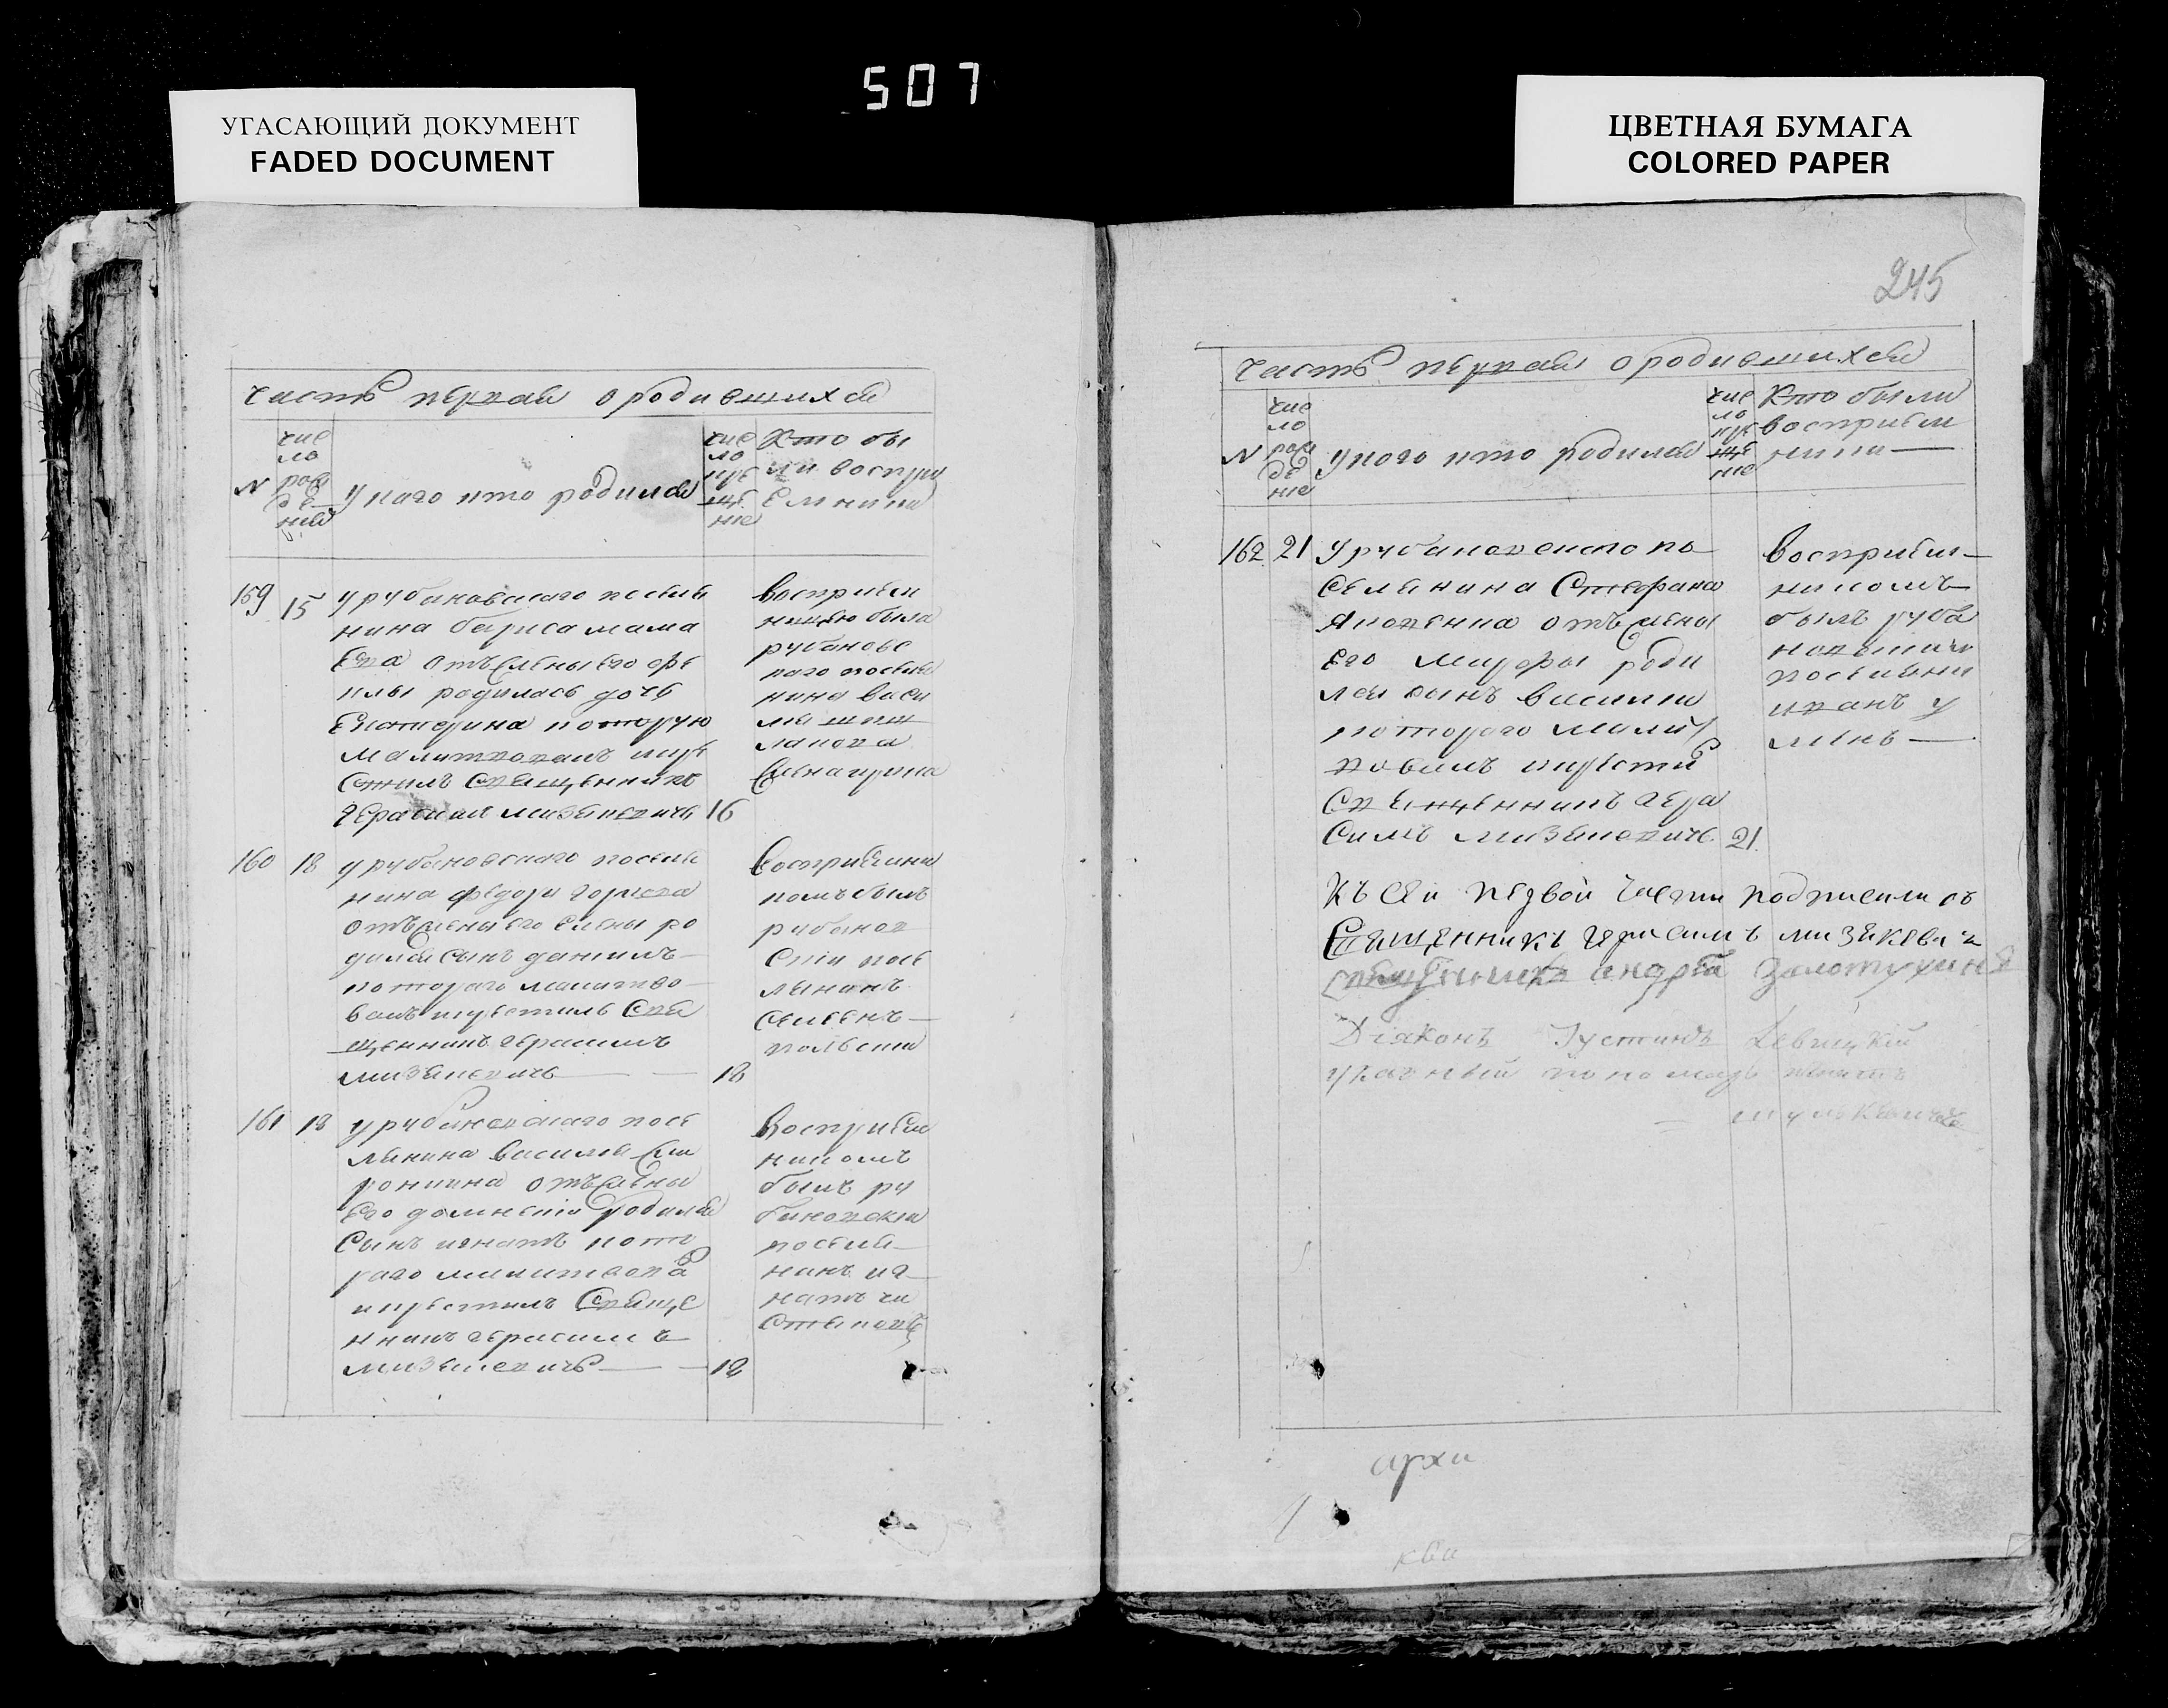 507
УГАСАЮЩИЙ ДОКУМЕНТ
FADED DOCUMENT
ЦВЕТНАЯ БУМАГА
COLORED PAPER
часть первая о родившихся
N
число рождения
у кого кто родился
число крещение
Кто были восприемника
159
15
урубановского поселя
нина бориса мама
ева отъ жены его
родилась дочь
Екатерина которую
малитвовалъ икре
стилъ священникъ
герасим мизекевичъ
16
восприем
ницею была
рубановс
каго поселя
нина васи
160
18
урубановского поселя
нина федора
отъ жены его елены ро
дился сынъ данилъ
котораго малитво
валъ икрестилъ свя
щенникъ герасимъ
мизекевичъ
18
восприемни
комъ былъ
рубанов
ски посе
лянинъ
семенъ
161
18
урубановскаго посе
лянина василия
отъ жены
его домникии родился
сынъ игнатъ кото
раго малитвова
икрестилъ свяще
нникъ герасимъ
мизекевичъ
18
восприем
никомъ
былъ ру
бановски
поселя
нинъ иг
натъ
245
часть первая о родившихся
N
число рожде ние
у кого кто родился
число кре ще ние
Кто были
восприем
ника
162
21
урубановскаго по
селянина Стефана
Яковенка отъ жены
его роди
лся сынъ василии
котораго малит
вовалъ икрести
священникъ гера
симъ мизекевичъ
21
восприем
никомъ
былъ руба
новски
поселяни
иванъ
къ сей первой части подписались
Священникъ герасимъ мизекевичъ
священникъ андрей Золотухинъ
Діаконъ Іустинъ Левицкій
указный пономарь
архи
ква